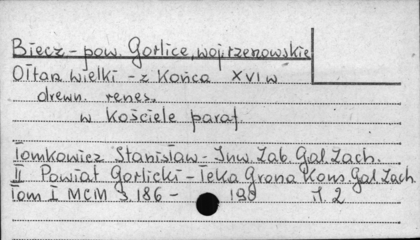 Biecz - pow. Gorlice, woj. rzeszowskie
Ołtarz wielki - z końca XVI w
drewn. renes.
w kościele paraf.
Tomkowicz Stanisław - Inw. Zab. Gal. Zach.
II Powiat Gorlicki - Teka Grona Kons. Gal. Zach
Tom I MCM S. 186 - 190 il. 2